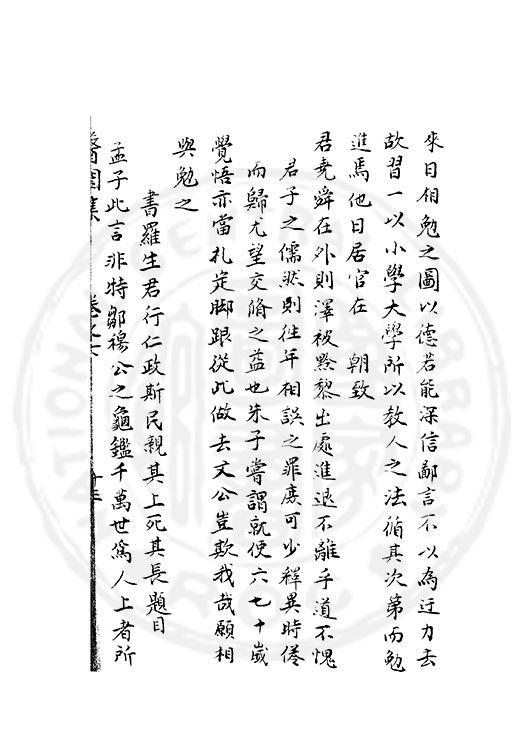 來日相勉之圖以德若能深信鄙言不以為迂力去
故習一以小學大學所以教人之法循其次第而勉
進焉他日居官在 朝致
君堯舜在外則澤被黔黎出處進退不離乎道不愧
君子之儒然則往年相誤之罪庶可少釋異時倦
而歸尤望交脩之益也朱子嘗謂就使六七十歲
覺悟亦當札定脚跟從此做去文公豈欺我哉願相
與勉之
書羅生君行仁政斯民親其上死其長題目
孟子此言非特鄒穆公之龜鑑千萬世爲人上者所